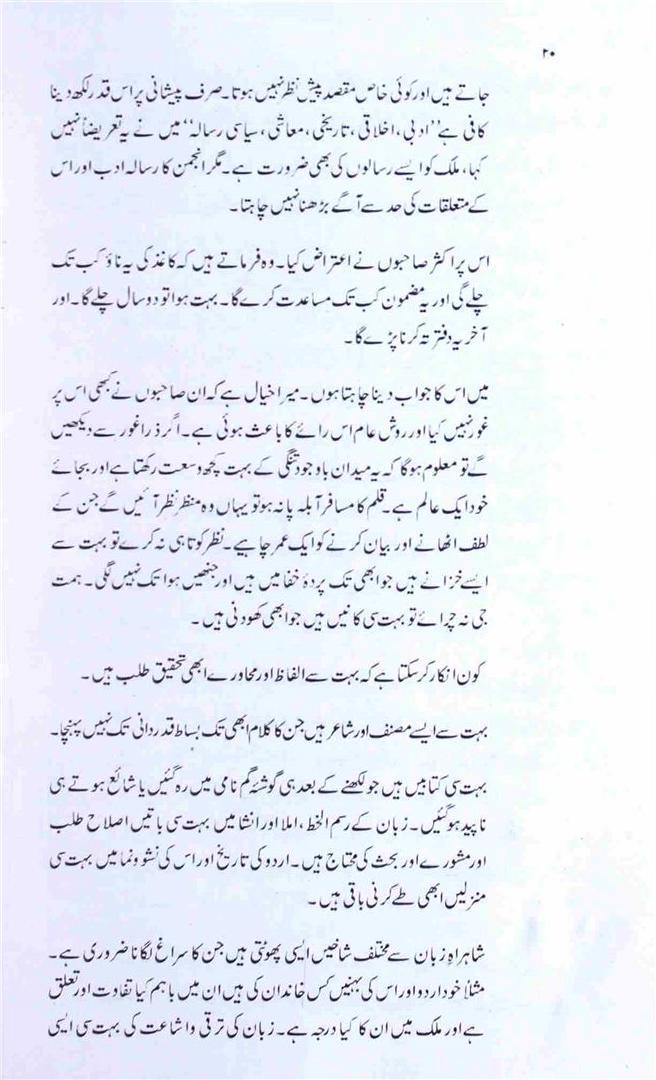 ۲۰
جاتے ہیں اور کوئی خاص مقصد پیش نظر نہیں ہوتا۔ صرف پیشانی پر اس قدر لکھ دینا
کافی ہے ’’ادبی، اخلاقی، تاریخی، معاشی، سیاسی رسالہ‘‘ میں نے یہ تعریضاً نہیں
کہا، ملک کو ایسے رسالوں کی بھی ضرورت ہے۔ مگر انجمن کا رسالہ ادب اور اس
کے متعلقات کی حد سے آگے بڑھنا نہیں چاہتا۔
اس پر اکثر صاحبوں نے اعتراض کیا۔ وہ فرماتے ہیں کہ کاغذ کی یہ ناؤ کب تک
چلے گی اور یہ مضمون کب تک مساعدت کرے گا۔ بہت ہوا تو دو سال چلے گا۔ اور
آخر یہ دفتر تہ کرنا پڑے گا۔
میں اس کا جواب دینا چاہتا ہوں۔ میرا خیال ہے کہ ان صاحبوں نے کبھی اس پر
غور نہیں کیا اور روش عام اس رائے کا باعث ہوئی ہے۔ اگر ذرا غور سے دیکھیں
گے تو معلوم ہوگا کہ یہ میدان باوجود تنگی کے بہت کچھ وسعت رکھتا ہے اور بجائے
خود ایک عالم ہے۔ قلم کا مسافر آبلہ پا نہ ہو تو یہاں وہ منظر نظر آئیں گے جن کے
لطف اٹھانے اور بیان کرنے کو ایک عمر چاہیے۔ نظر کوتاہی نہ کرے تو بہت سے
ایسے خزانے ہیں جو ابھی تک پردۂ خفا میں ہیں اور جنھیں ہوا تک نہیں لگی۔ ہمت
جی نہ چرائے تو بہت سی کانیں ہیں جو ابھی کھودنی ہیں۔
کون انکار کرسکتا ہے کہ بہت سے الفاظ اور محاورے ابھی تحقیق طلب ہیں۔
بہت سے ایسے مصنف اور شاعر ہیں جن کا کلام ابھی تک بساط قدردانی تک نہیں پہنچا۔
بہت سی کتابیں ہیں جو لکھنے کے بعد ہی گوشۂ گم نامی میں رہ گئیں یا شائع ہوتے ہی
ناپید ہوگئیں۔ زبان کے رسم الخط، املا اور انشا میں بہت سی باتیں اصلاح طلب
اور مشورے اور بحث کی محتاج ہیں۔ اردو کی تاریخ اور اس کی نشوونما میں بہت سی
منزلیں ابھی طے کرنی باقی ہیں۔
شاہراہِ زبان سے مختلف شاخیں ایسی پھوٹتی ہیں جن کا سراغ لگانا ضروری ہے۔
مثلاً خود اردو اور اس کی بہنیں کس خاندان کی ہیں ان میں باہم کیا تفاوت اور تعلق
ہے اور ملک میں ان کا کیا درجہ ہے۔ زبان کی ترقی و اشاعت کی بہت سی ایسی